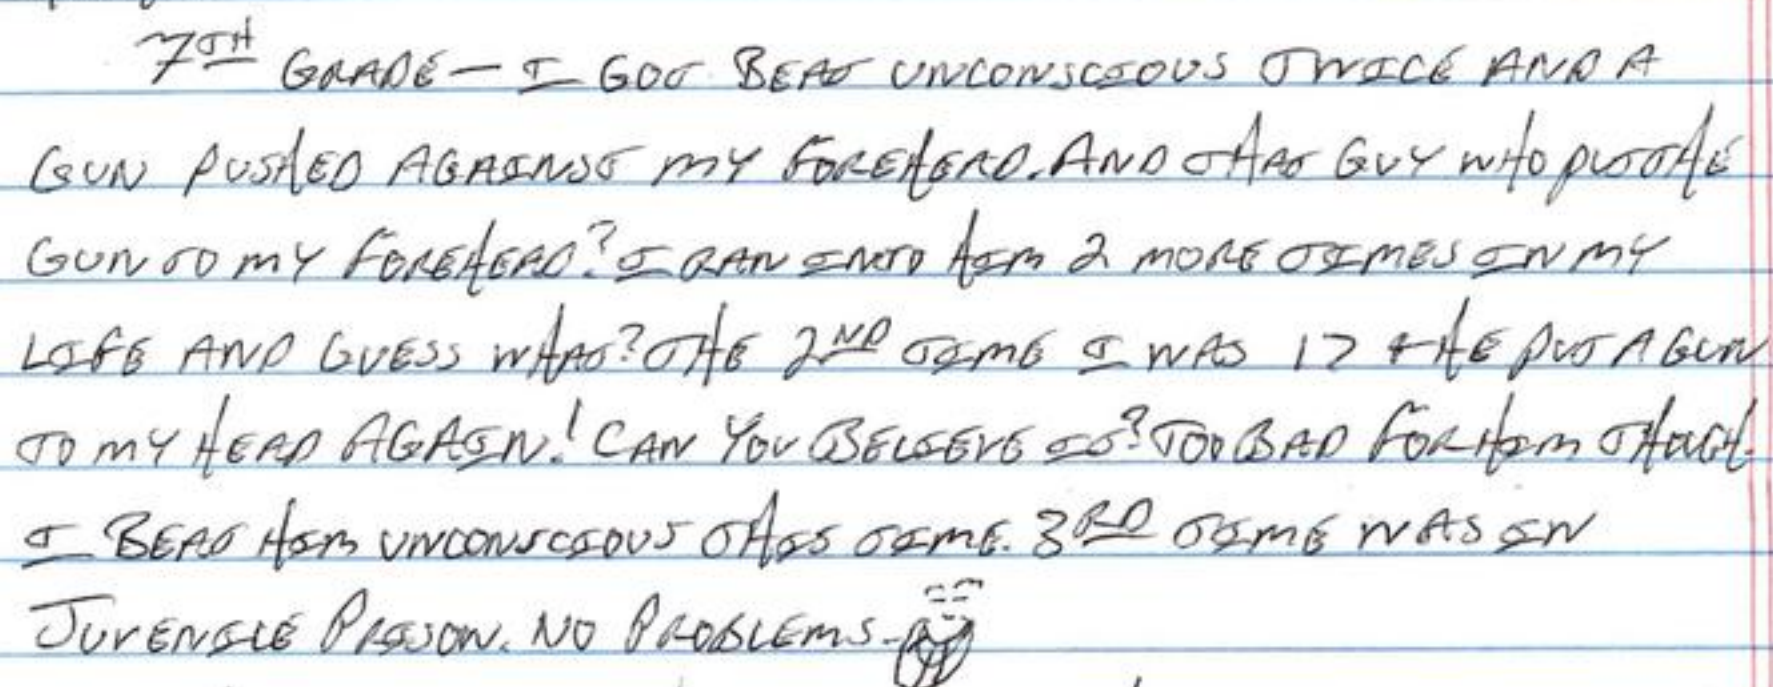 7TH GRADE — I GOT BEAT UNCONSCIOUS TWICE AND A
GUN PUSHED AGAINST MY FOREHEAD. AND THAT GUY WHO PUT THE
GUN TO MY FOREHEAD? I RAN INTO HIM 2 MORE TIMES IN MY
LIFE AND GUESS WHAT? THE 2ND TIME I WAS 17 + HE PUT A GUN
TO MY HEAD AGAIN! CAN YOU BELIEVE IT? TOO BAD FOR HIM THOUGH.
I BEAT HIM UNCONSCIOUS THIS TIME. 3RD TIME WAS IN
JUVENILE PRISON. NO PROBLEMS.